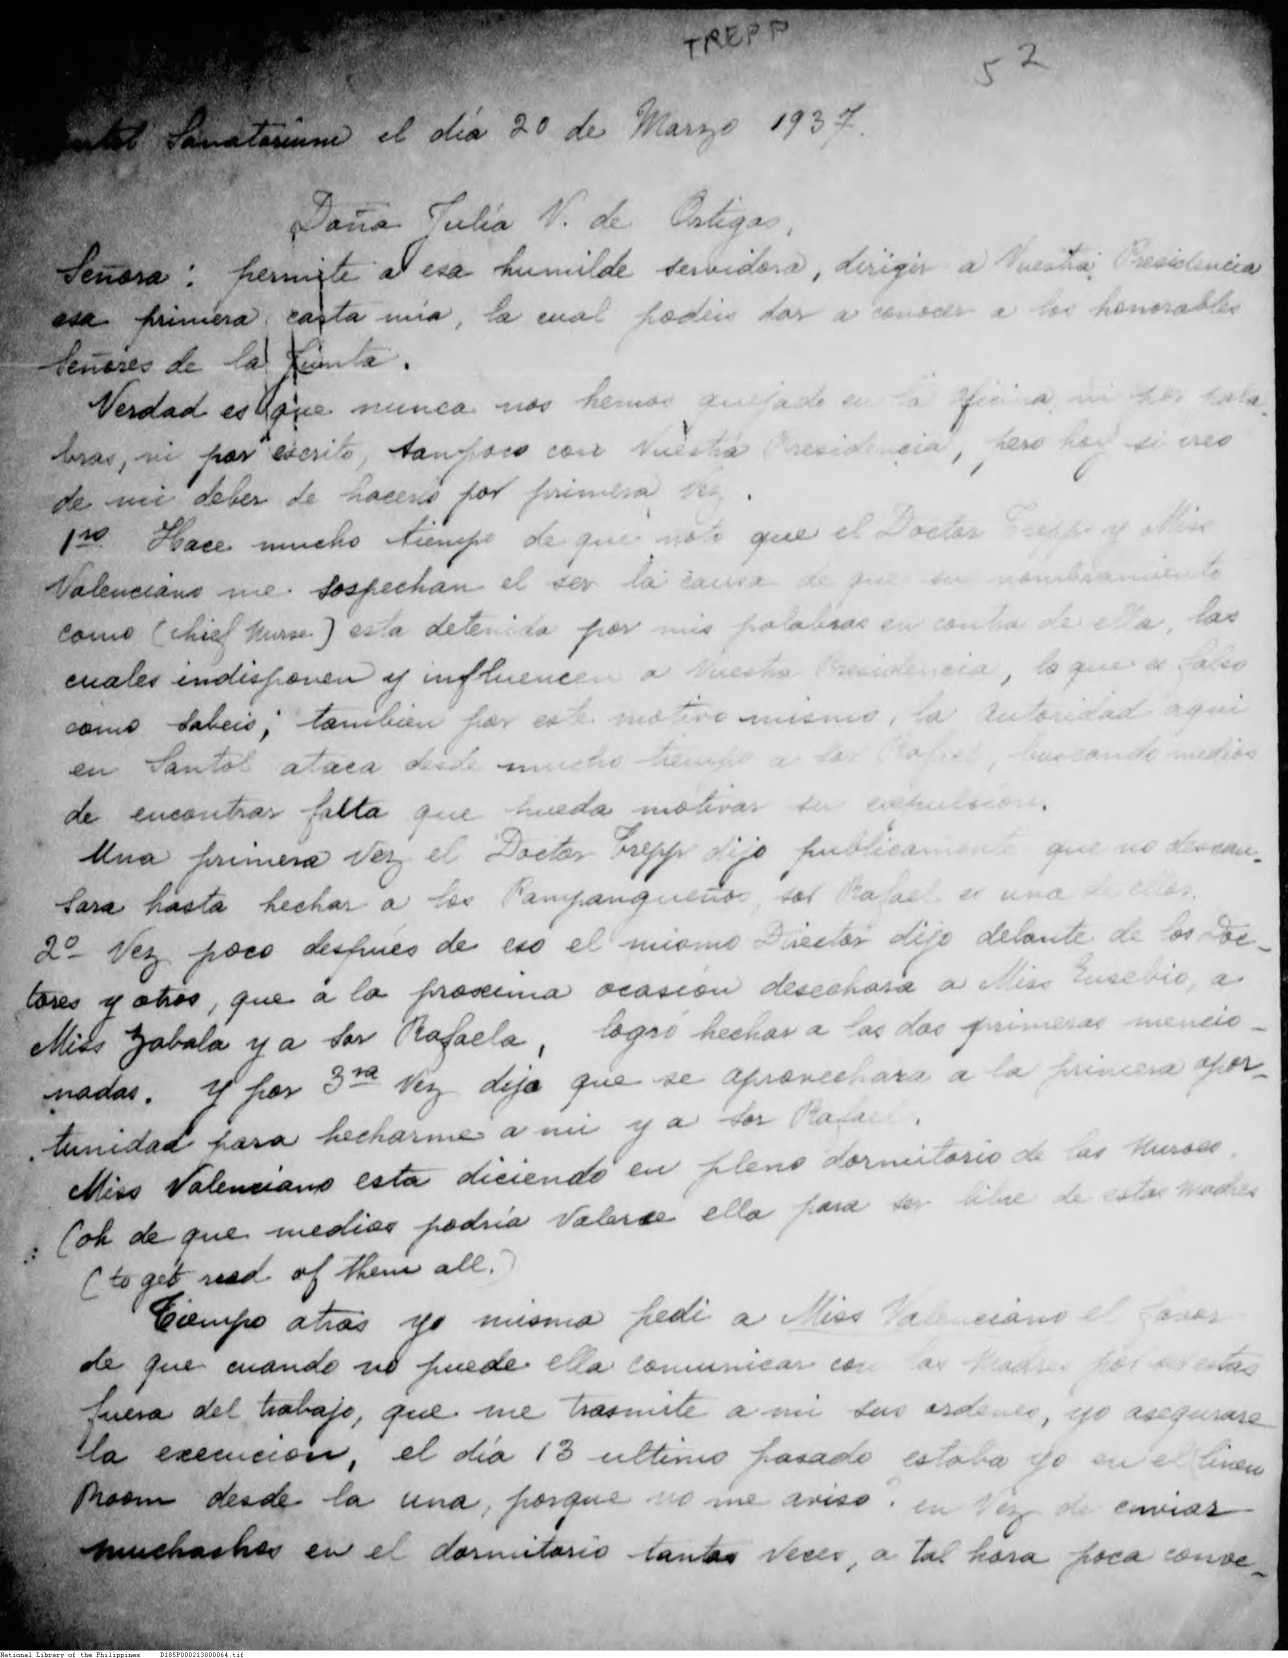 TREPP
52
Sanatorium el día 20 de Marzo 1937.
Doña Julia V. de Ortigas,
Señora: permite a esa humilde servidora, dirigir a Vuestra Presidencia
esa primera carta mia, la cual podeis dar a conocer a los honorables
Señores de la Junta.
Verdad es que nunca nos hemos quejado en la oficina ni por pala-
bras, ni por escrito, tampoco con Vuestra Presidencia, pero hoy si creo
de mi deber de hacerlo por primera vez.
1ro Hace mucho tiempo de que noto que el Doctor Trepp y Miss
Valenciano me sospechan el ser la causa de que su nombramiento
como (chief Nurse) esta detenido por mis palabras en contra de ella, las
cuales indisponen y influencen a Vuestra Presidencia, lo que es falso
como sabeis; tambien por este motivo mismo, la autoridad aqui
en Santol ataca desde mucho tiempo a sor Rafael, buscando medios
de encontrar falta que pueda motivar su expulsion.
Una primera vez el Doctor Trepp dijo publicamente que no descan-
sara hasta hechar a los Pampangueños, sor Rafael es una de ellos.
2o Vez poco después de eso el mismo Director dijo delante de los Doc-
tores y otros, que a la proxima ocasión desechara a Miss Eusebio, a
Miss Zabala y a Sor Rafaela, logró hechar a las dos primeras mencio-
nadas. Y por 3ra Vez dijo que se aprovechara a la primera opor-
tunidad para hecharme a mi y a Sor Rafael.
Miss Valenciano esta diciendo en pleno dormitorio de las Nurses
(oh de que medios podría valerse ella para ser libre de estas Madres
(to get read of them all.)
Tiempo atras yo misma pedi a Miss Valenciano el favor
de que cuando no puede ella comunicar con las Madres por
fuera del trabajo, que me trasmite a mi sus ordenes, yo asegurare
la execucion, el día 13 ultimo pasado estaba yo en el linen
Room desde la una, porque no me aviso? en Vez de enviar
muchachos en el dormitorio tantas veces, a tal hora poca conve-
National Library of the Philippines D185P000213800064.tif